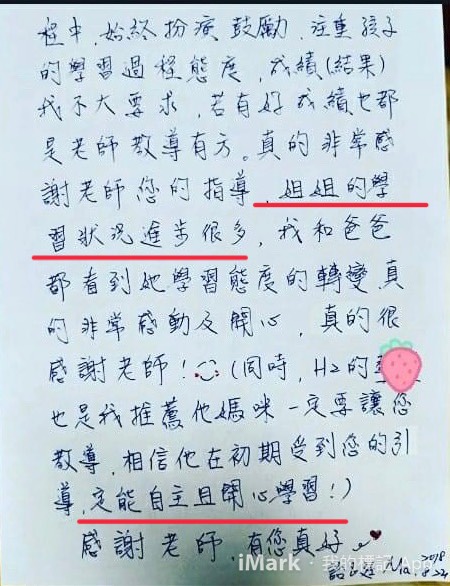 程中,始終扮演鼓勵,注重孩子
的學習過程態度,成績(結果)
我不大要求,若有好成績也都
是老師教導有方。真的非常感
謝老師您的指導,姐姐的學
習狀況進步很多,我和爸爸
都看到她學習態度的轉變,真
的非常感動及開心,真的很
感謝老師!(同時,H2的
也是我推薦他媽咪一定要讓您
教導,相信他在初期受到您的引
導,定能自主且開心學習!)
感謝老師,有您真好
iMark·我的標記 App